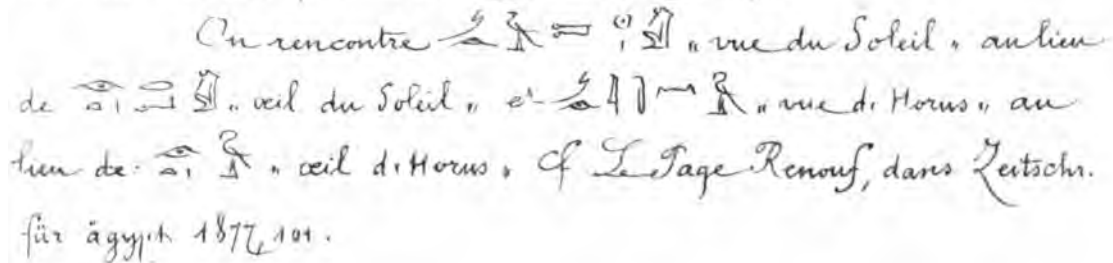 On rencontre „ vue du Soleil „ au lieu
de „ œil du Soleil „ et „ vue d'Horus „ au
lieu de „ œil d'Horus „ Cf Le Page Renouf, dans Zeitschr.
für ägypt 1877, 101.